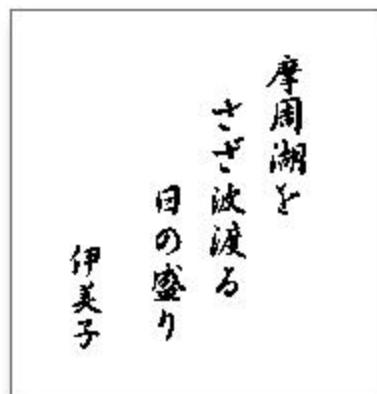 摩周湖を
さざ波渡る
日の盛り
伊美子